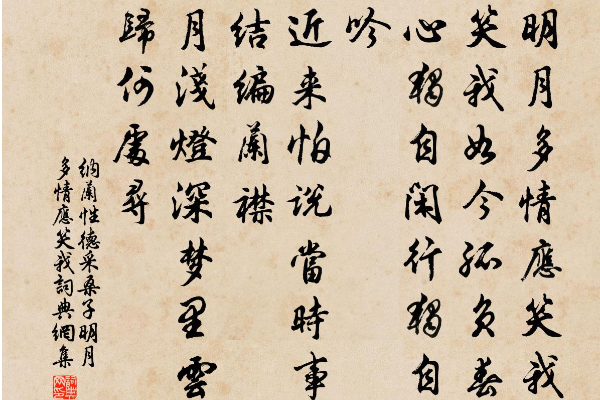 明月多情應笑我
笑我如今孤负春
心獨自閑行獨自
吟
近来怕说當時事
结编蘭襟
月淺燈深梦里雲
歸何處尋
纳蘭性德采桑子明月
多情應笑我詞典網集